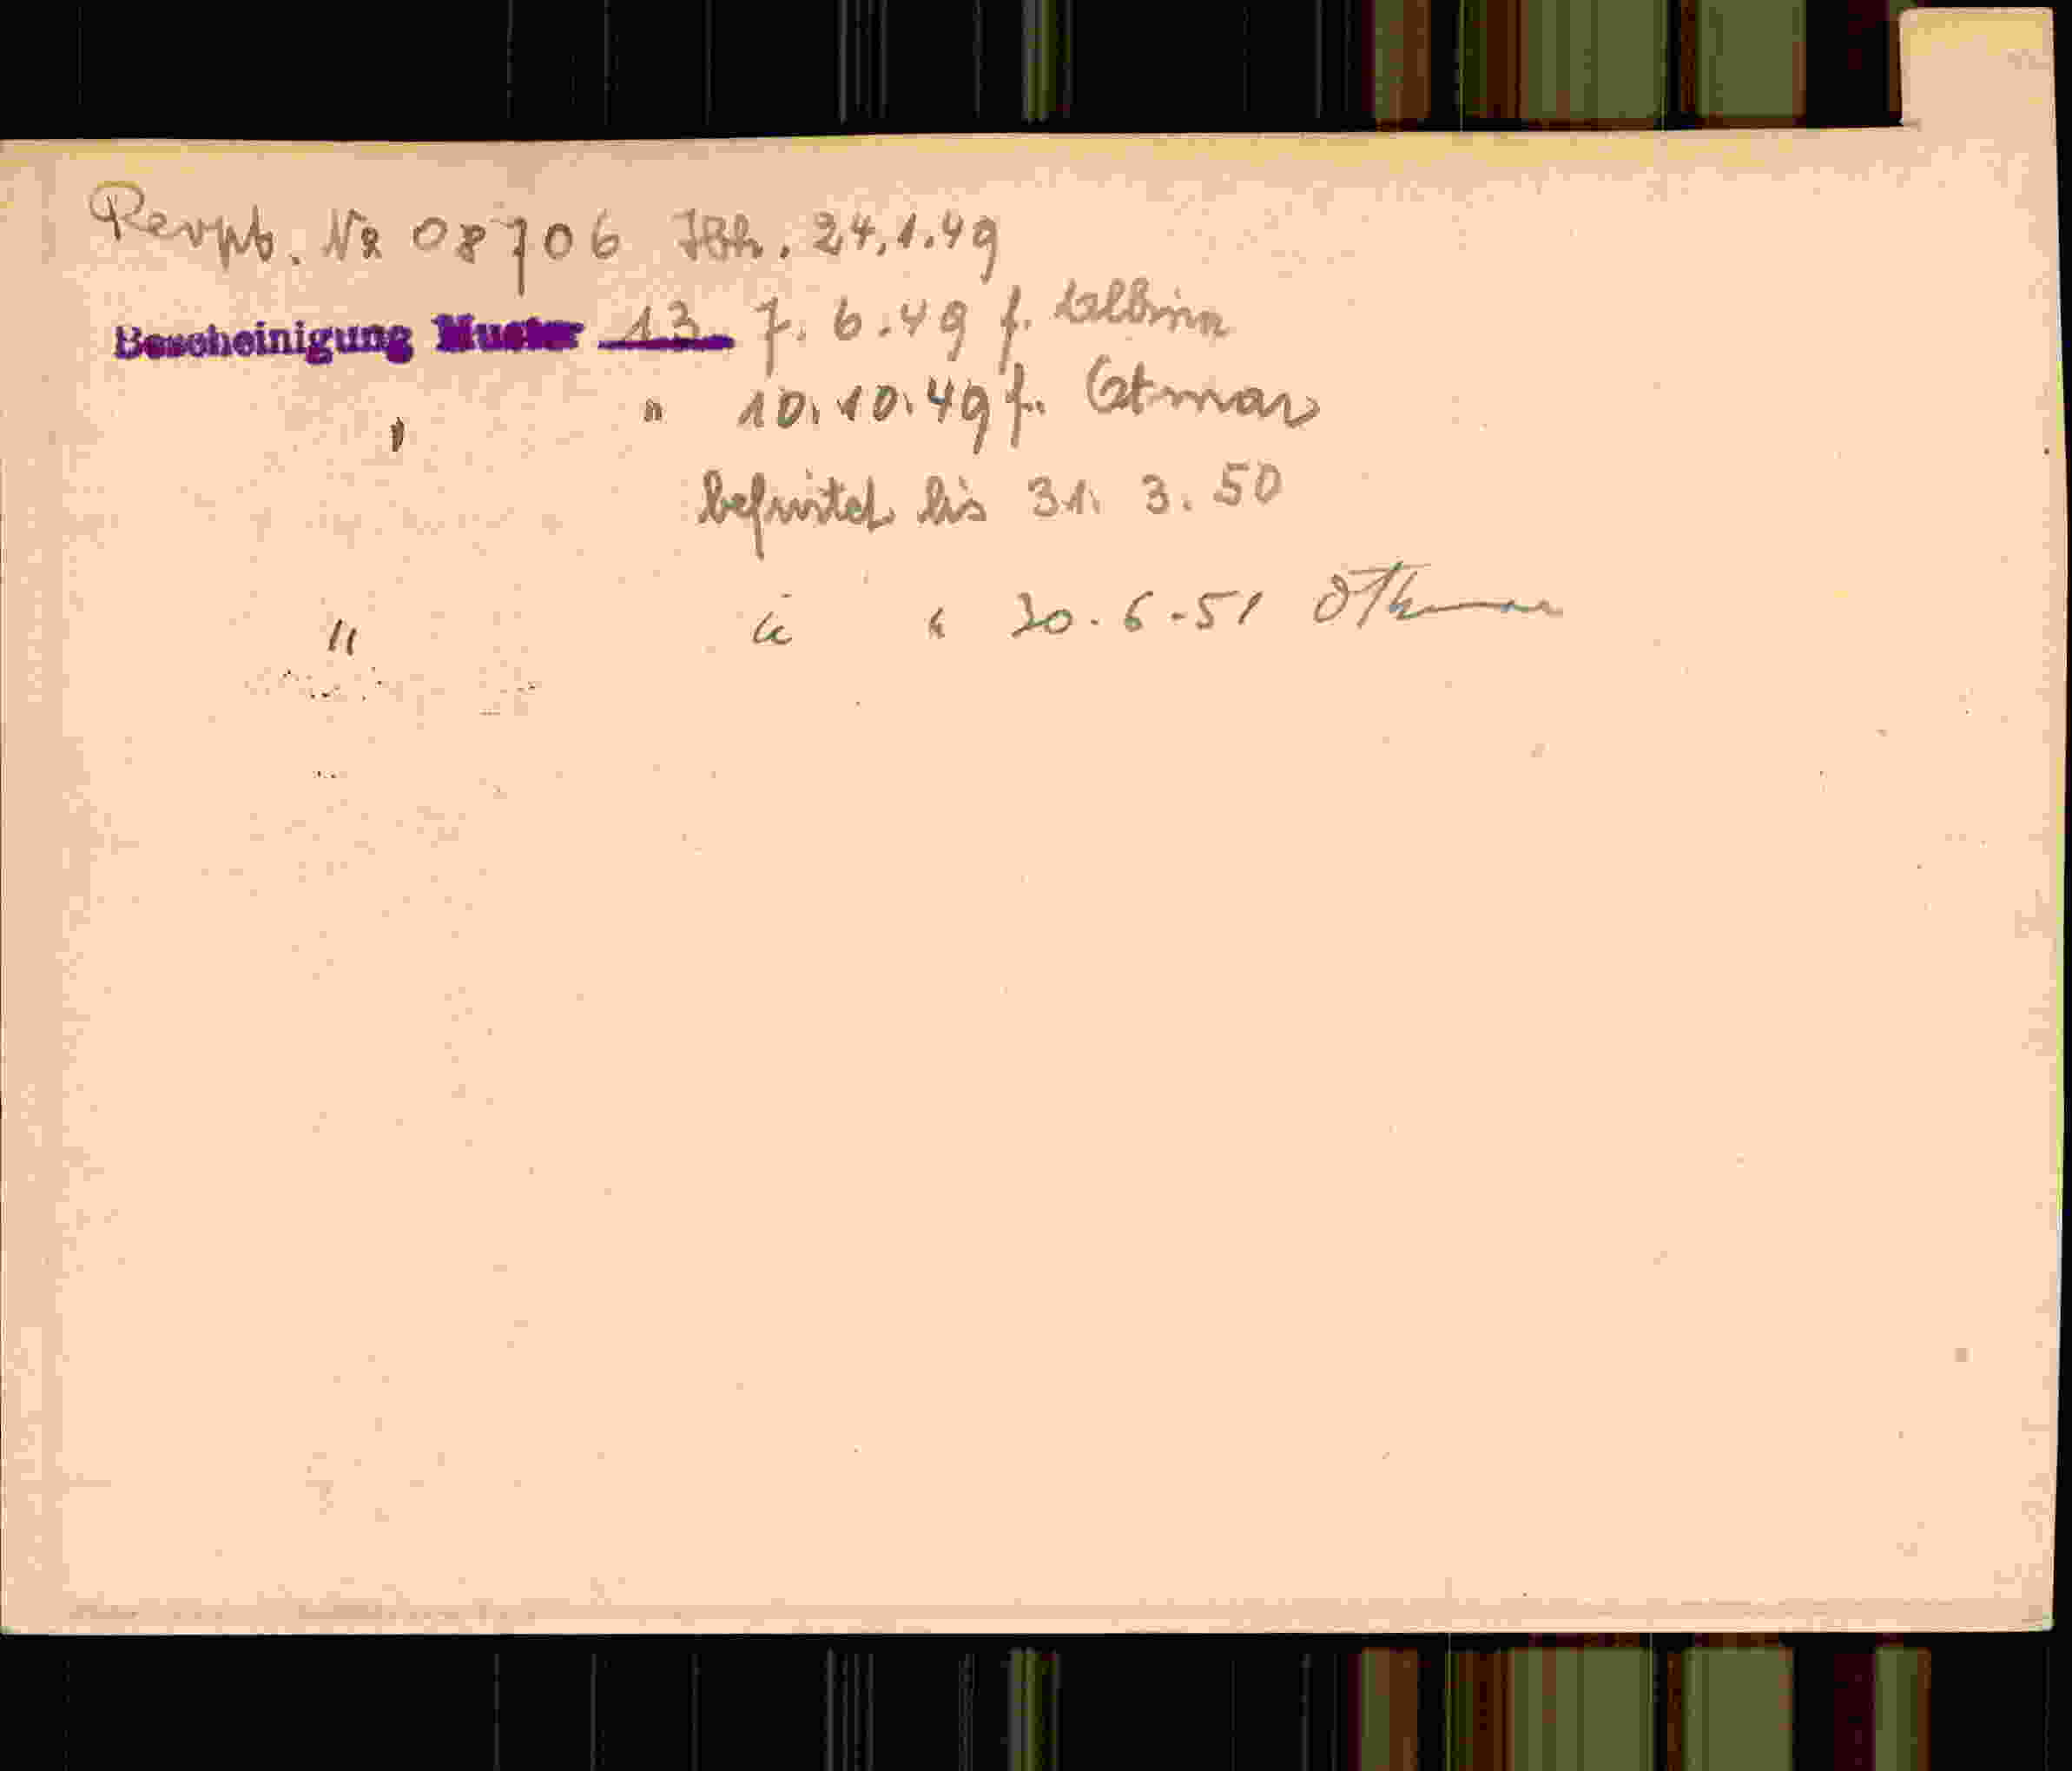 Nr 08706 Jbh. 24.1.49
Bescheinigung Muster 13 7.6.49 f. Albina
" " 10.10.49 f. Otmar
befristet bis 31. 3. 50
" " " 30.6.51 Othmar